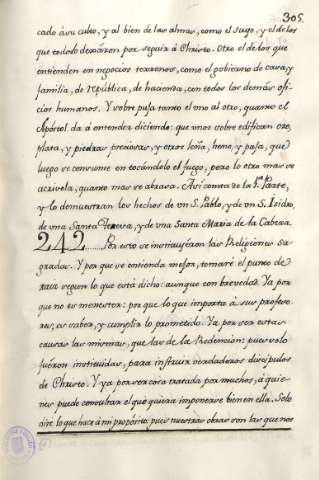 305.
cado á su culto, y al bien de las almas, como el suyo, y el de los
que todo lo dexáron por seguir á Christo. Otro el de los que
entienden en negocios terrenos, como el gobierno de casa, y
familia, de república, de hacienda, con todos los demás ofi-
cios humanos. Y sobre puja tanto el uno al otro, quanto el
Apóstol da á entender diciendo: que unos sobre edifican oro,
plata, y piedras preciosas, y otros leña, heno, y paja, que
luego se consume en tocándolo el fuego, pero lo otro mas se
acrisola, quanto mas se abrasa. Así consta de la 1ª Parte,
y lo demuestran los hechos de un S. Pablo, y de un S. Isidro,
de una Santa Teresa, y de una Santa Maria de la Cabeza.
242 Por esto se instituyéron las Religiones Sa-
gradas. Y por que se entienda mejor, tomaré el punto de
raiz segun lo que está dicho: aunque con brevedad. Ya por
que no es menester: por que lo que importa á sus profeso-
res, es saber, y cumplir lo prometido. Ya por ser estas
causas las mismas, que las de la Redencion: pues solo
fuéron instituidas, para instruir verdaderos discípulos
de Christo. Y ya por ser cosa tratada por muchos, á quie-
nes puede consultar el que quiera imponerse bien en ella. Solo
diré lo que hace á mi propósito: pues nuestras obras son las que nos